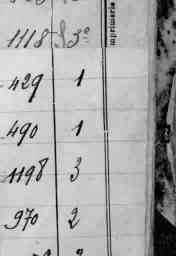 1118 3°
429 1
490 1
1198 3
970 2
imprimerie